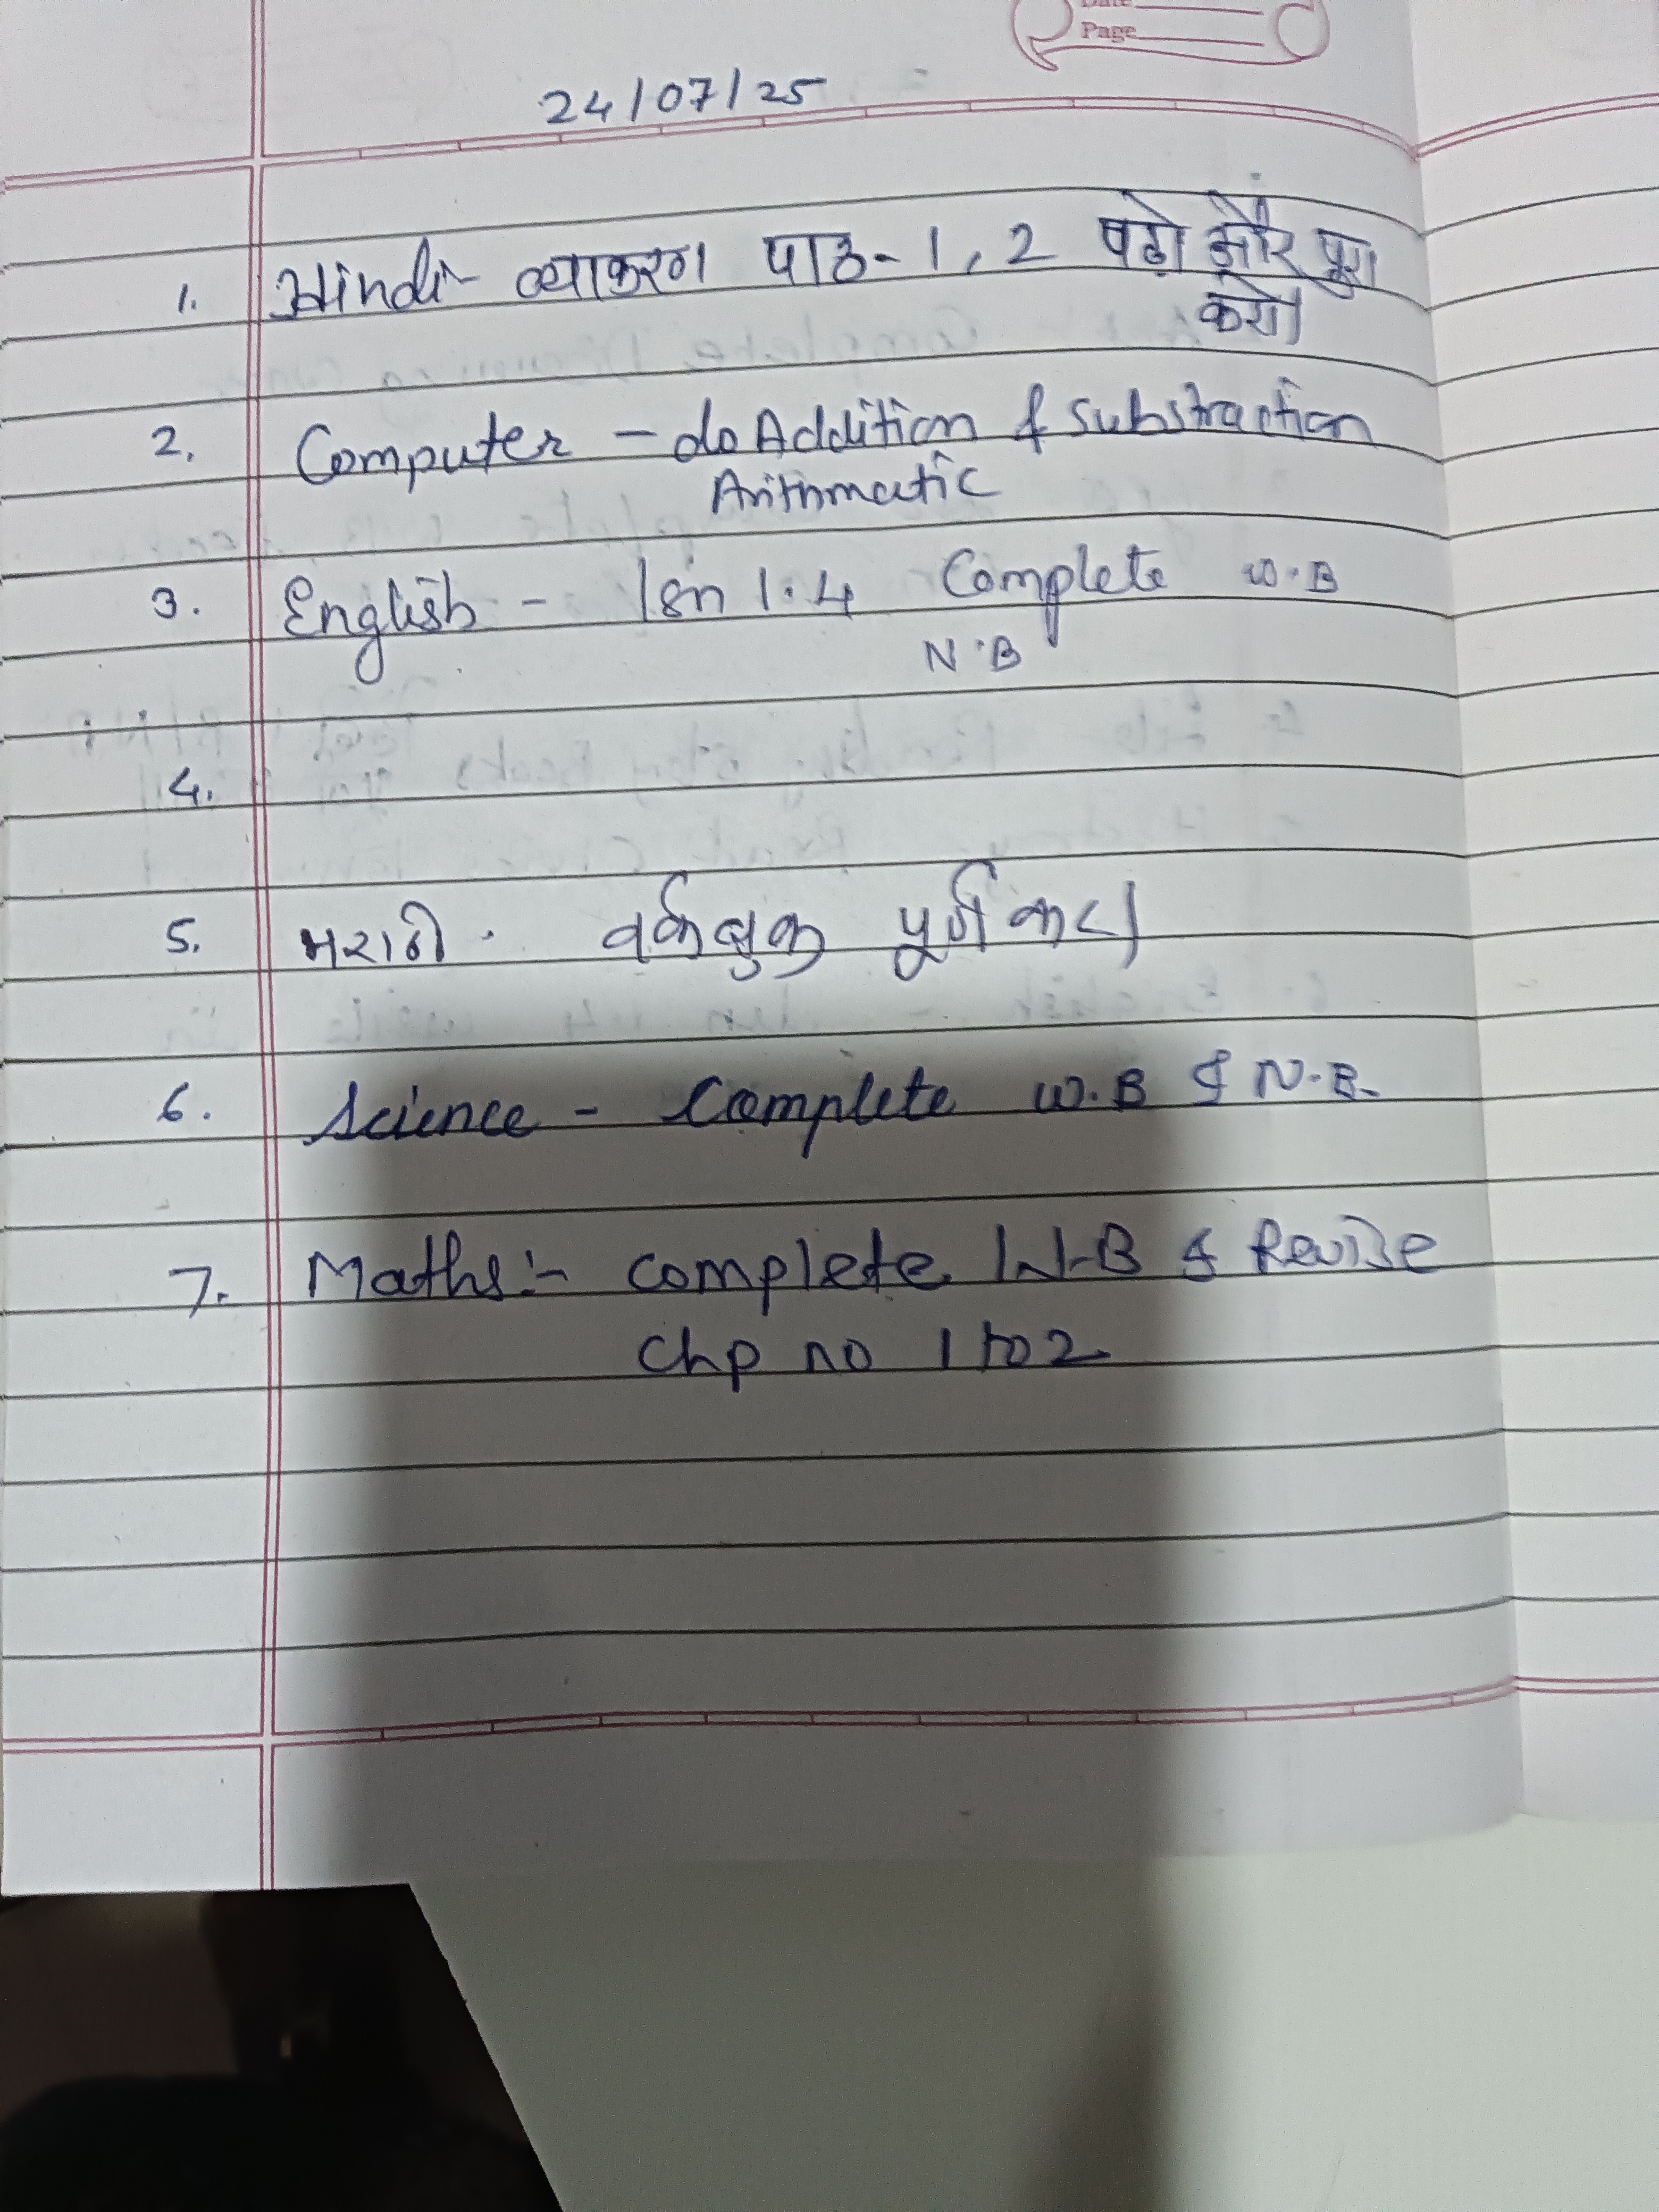 Page
24/07/25
1. Hindi - व्याकरण पाठ - 1, 2 पढ़ो और पूरा
करो।
2. Computer - do Addition & Substraction
Arithmatic
3. English - lsn 1.4 Complete W.B
N.B
4.
5. मराठी. वर्कबुक पूर्ण करा
6. Science - Complete W.B & N.B.
7. Maths:- complete W.B & Revise
Chp no 1 to 2